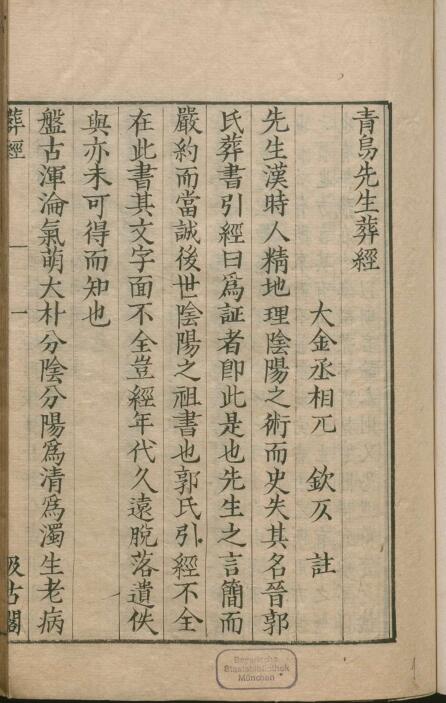 青烏先生葬經
大金丞相兀 欽仄 註
先生漢時人精地理陰陽之術而史失其名晉郭
氏葬書引經曰爲証者即此是也先生之言簡而
嚴約而當誠後世陰陽之祖書也郭氏引經不全
在此書其文字面不全豈經年代久遠脫落遺佚
與亦未可得而知也
盤古渾淪氣萌大朴分陰分陽爲清爲濁生老病
葬經 一 汲古閣
Bayerische
Staatsbibliothek
München